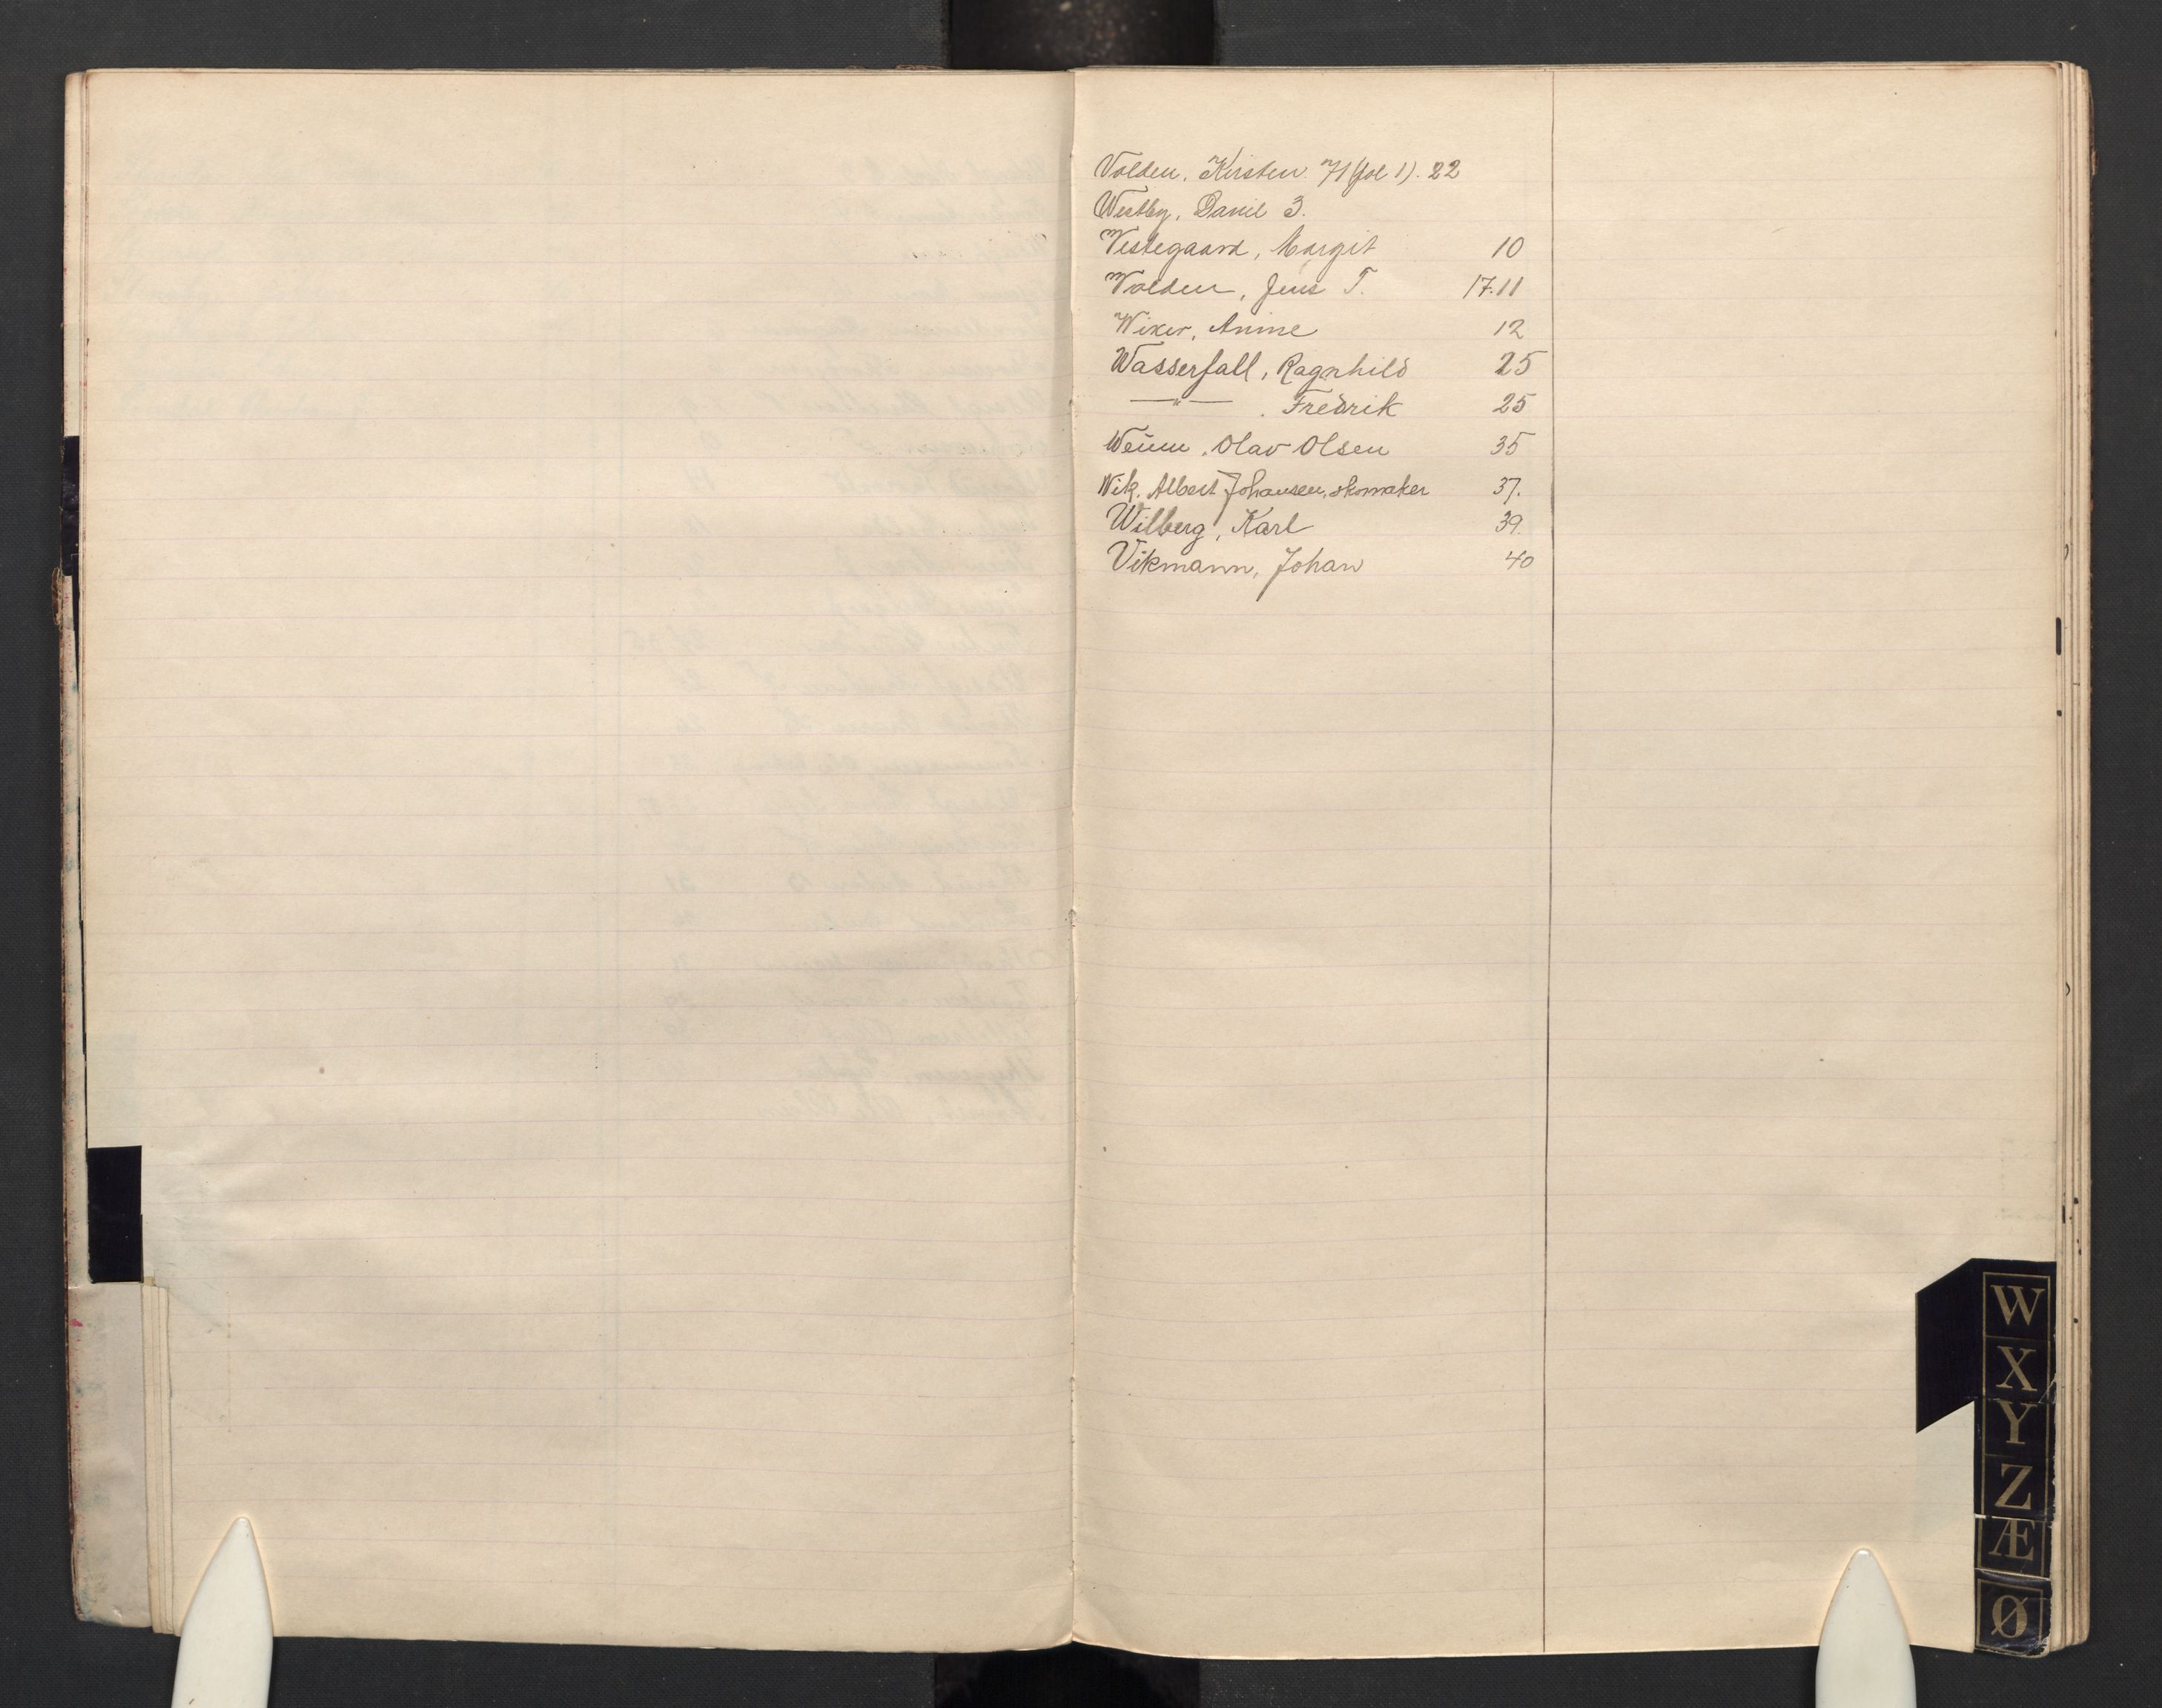 Volden, Kirsten 71 (fol 1). 22
Westby, Daniel 3.
Vestegaard, Margit 10
Volden, Jens T. 17.11
Wiker, Anine 12
Wasserfall, Ragnhild 25
—"— . Fredrik 25
Weium, Olav Olsen 35
Wik, Albert Johansen, skomaker 37.
Wilberg, Karl 39.
Vikmann, Johan 40
W
X
Y
Z
Æ
Ø